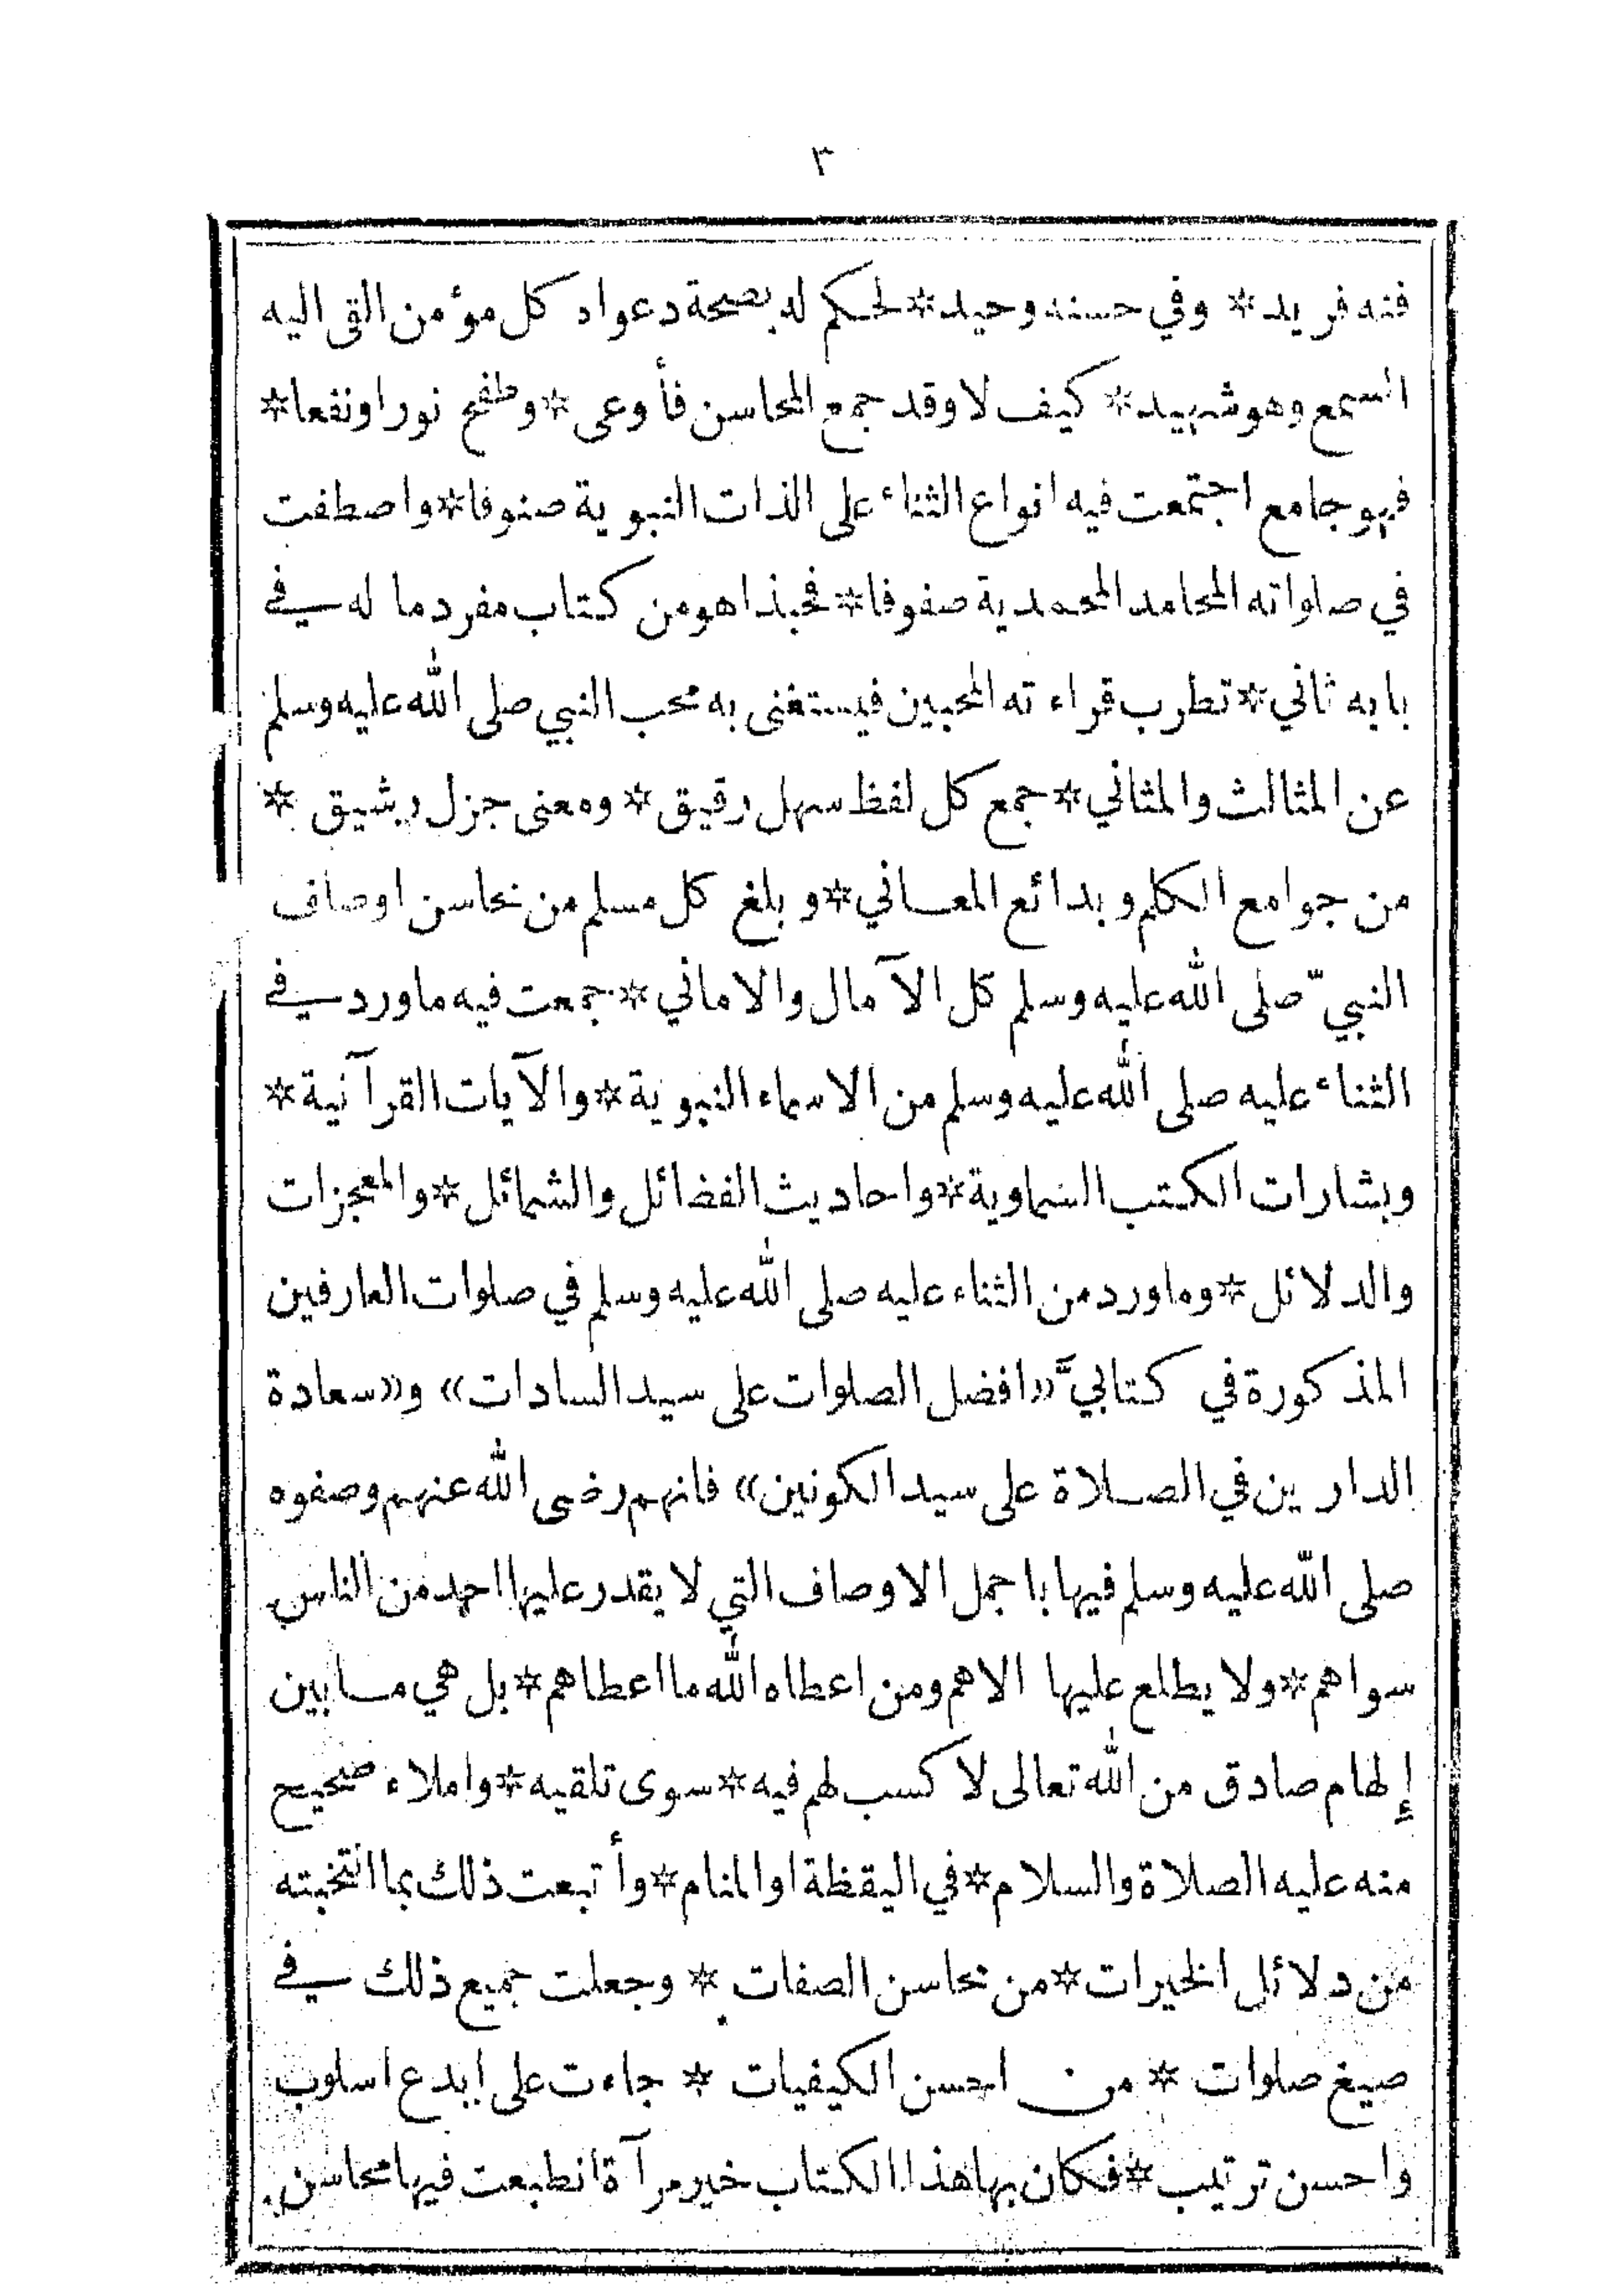 ٣
فنه فريد * وفي حسنه وحيد * لحكم له بصحة دعواه كل مؤمن القى اليه
السمع وهو شهيد * كيف لا وقد جمع المحاسن فأوعى * وطفح نورا ونفعا *
فهو جامع اجتمعت فيه انواع الثناء على الذات النبوية صنوفا * واصطفت
في صلواته المحامد المحمدية صفوفا * فحبذا هو من كتاب مفرد ما له في
بابه ثاني * تطرب قراءته المحبين فيستغنى به محب النبي صلى الله عليه وسلم
عن المثالث والمثاني * جمع كل لفظ سهل رقيق * ومعنى جزل رشيق *
من جوامع الكلم وبدائع المعاني * وبلغ كل مسلم من محاسن اوصاف
النبيّ صلى الله عليه وسلم كل الآمال والاماني * جمعت فيه ما ورد في
الثناء عليه صلى الله عليه وسلم من الاسماء النبوية * والآيات القرآنية *
وبشارات الكتب السماوية * واحاديث الفضائل والشمائل * والمعجزات
والدلائل * وما ورد من الثناء عليه صلى الله عليه وسلم في صلوات العارفين
المذكورة في كتابيَّ «افضل الصلوات على سيد السادات» و«سعادة
الدارين في الصلاة على سيد الكونين» فانهم رضى الله عنهم وصفوه
صلى الله عليه وسلم فيها باجمل الاوصاف التي لا يقدر عليها احد من الناس
سواهم * ولا يطلع عليها الا هم ومن اعطاه الله ما اعطاهم * بل هي ما بين
إلهام صادق من الله تعالى لا كسب لهم فيه * سوى تلقيه * واملاء صحيح
منه عليه الصلاة والسلام * في اليقظة او المنام * وأتبعت ذلك بما انتخبته
من دلائل الخيرات * من محاسن الصفات * وجعلت جميع ذلك في
صيغ صلوات * من احسن الكيفيات * جاءت على ابدع اسلوب
واحسن ترتيب * فكان بها هذا الكتاب خير مرآة انطبعت فيها محاسن